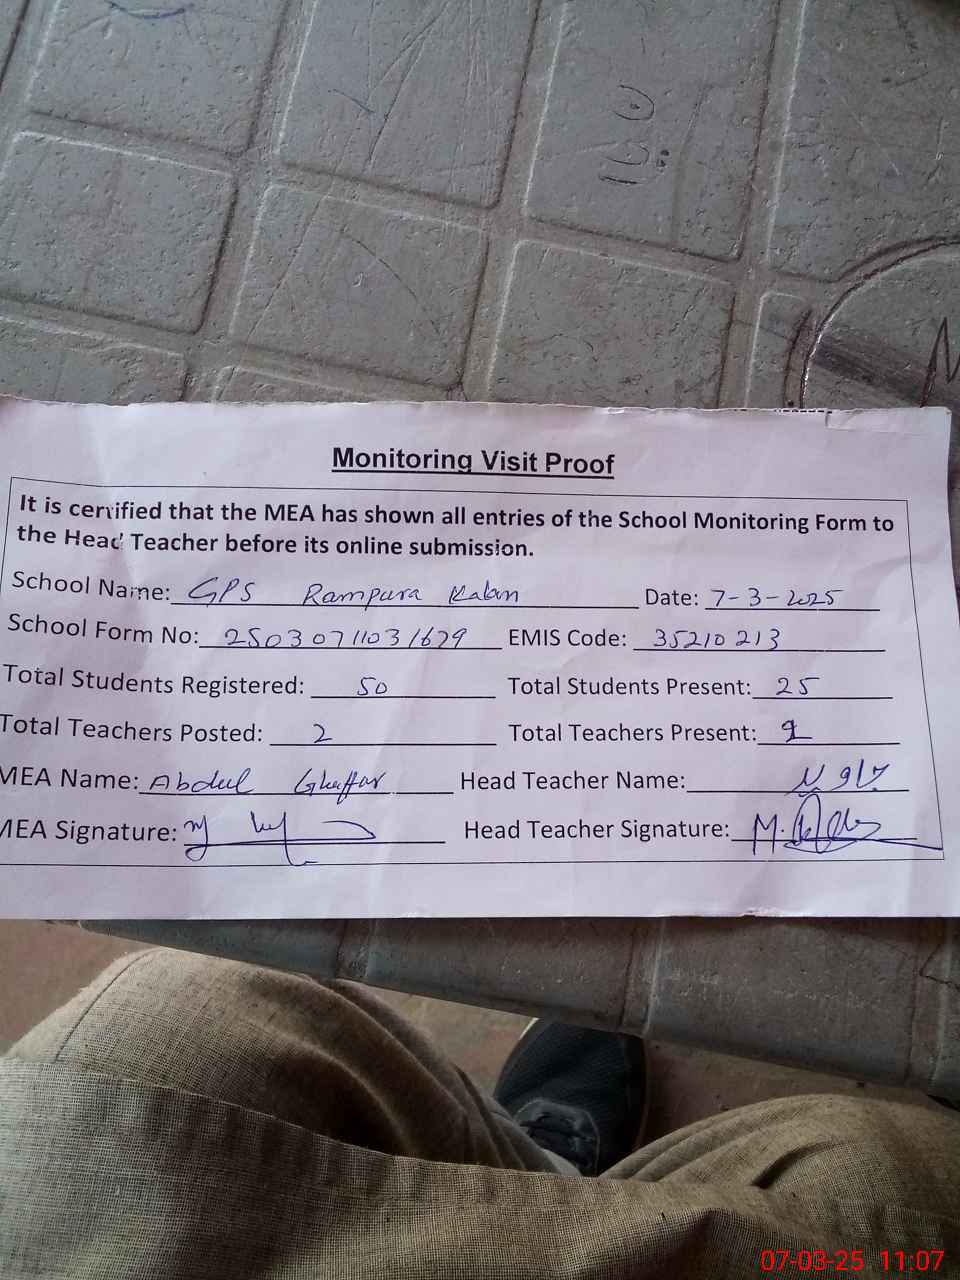 Monitoring Visit Proof
It is certified that the MEA has shown all entries of the School Monitoring Form to
the Head Teacher before its online submission.
School Name: GPS Rampura Kalan Date: 7-3-2025
School Form No: 25030711031679 EMIS Code: 35210213
Total Students Registered: 50 Total Students Present: 25
Total Teachers Posted: 2 Total Teachers Present: 1
MEA Name: Abdul Ghaffar Head Teacher Name:
MEA Signature: Head Teacher Signature: M.
07-03-25 11:07